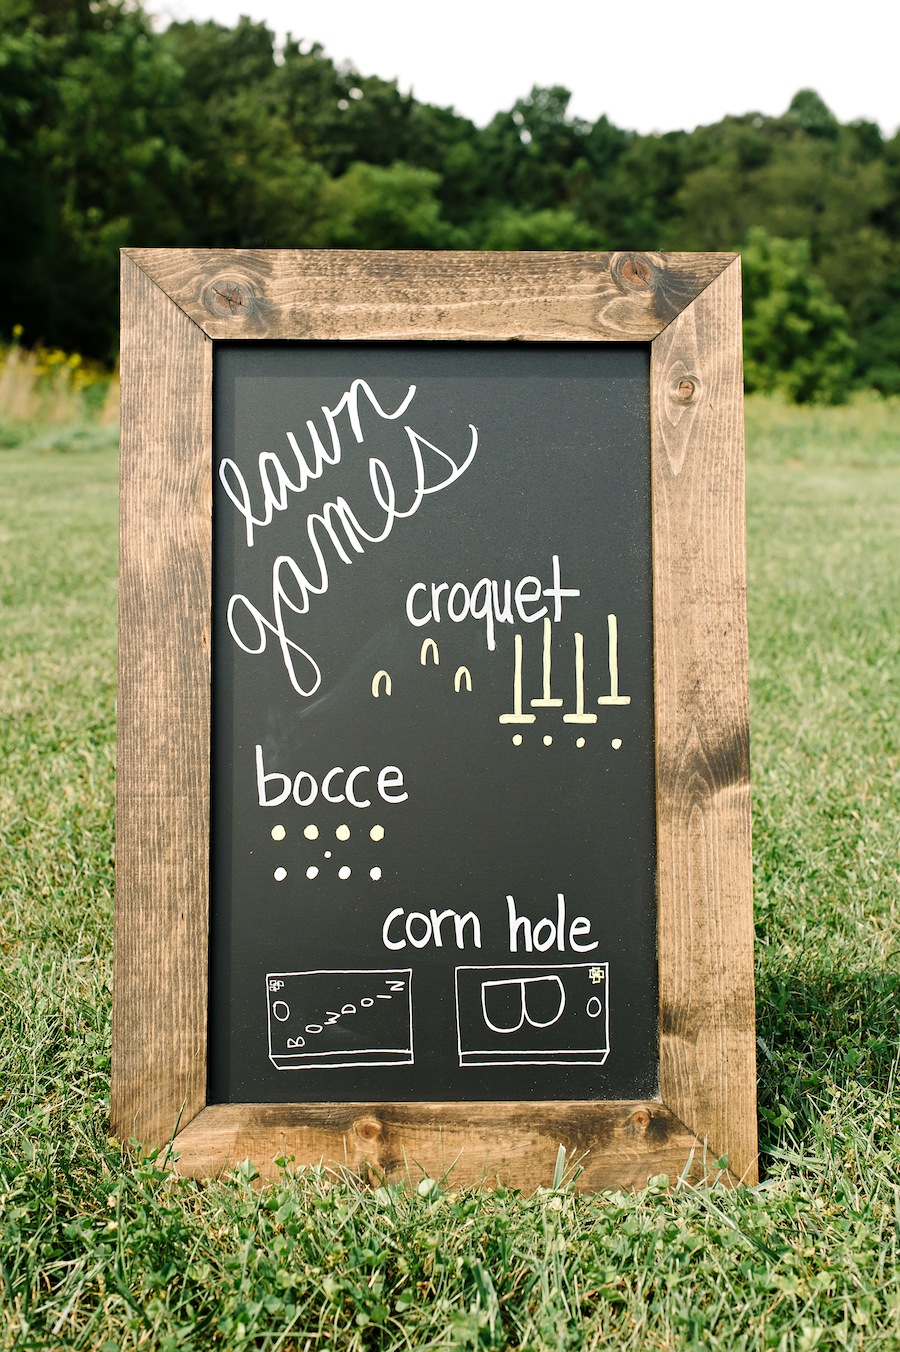 lawn
games
croquet
bocce
corn hole
BOWDOIN
B